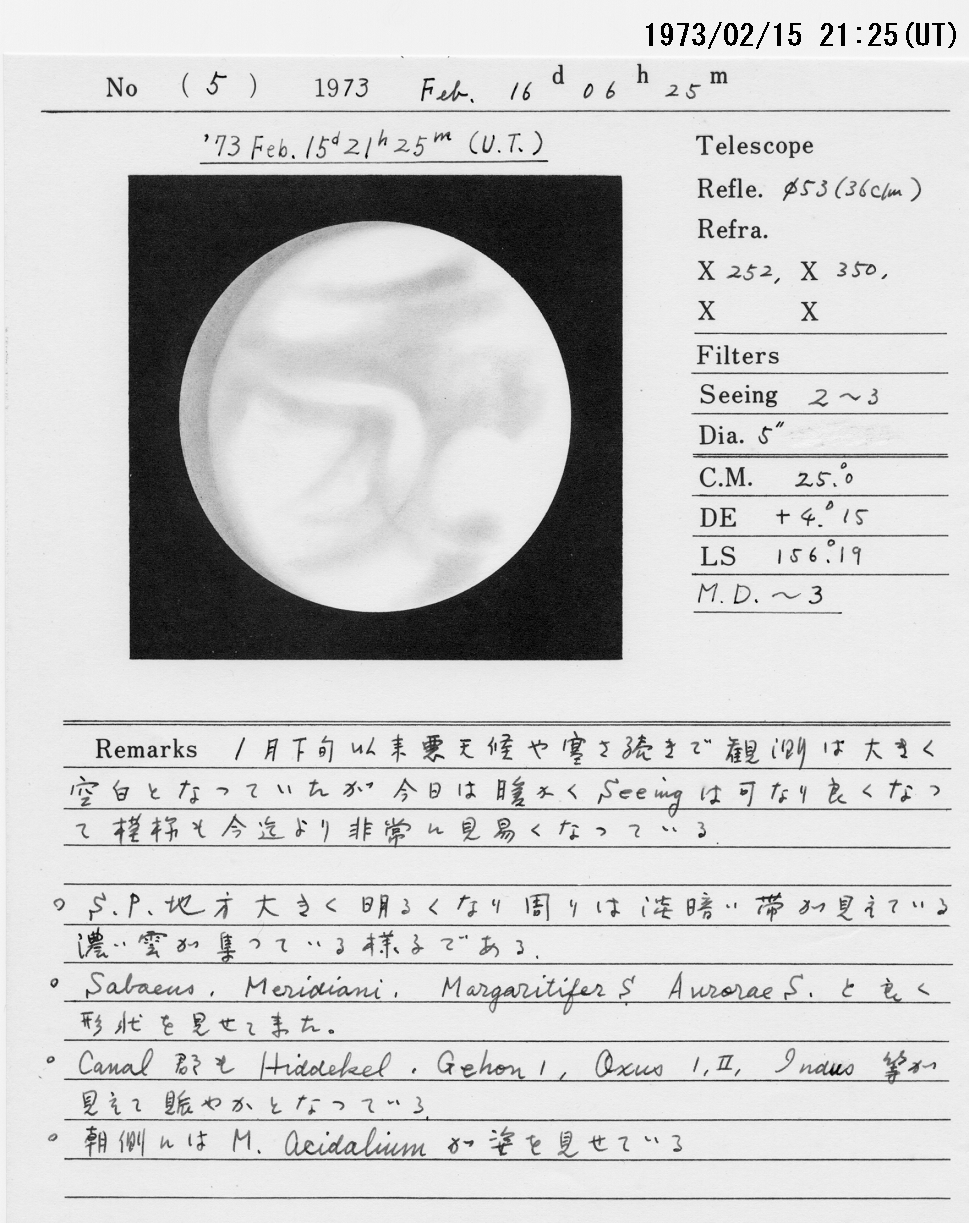 1973/02/15 21:25(UT)
No (5) 1973 Feb. 16 d 06 h 25 m
'73 Feb. 15d 21h 25m (U.T.)
Telescope
Refle. φ53(36c/m)
Refra.
X 252, X 350,
X X
Filters
Seeing 2~3
Dia. 5"
C.M. 25.°0
DE +4.°15
LS 156.°19
M.D. ~3
Remarks 1月下旬以来悪天候や寒さ続きで観測は大きく
空白となっていたが今日は暖かくSeeingは可なり良くなっ
て模様も今迄より非常に見易くなっている
○ S.P.地方大きく明るくなり周りは淡暗い帯が見えている
濃い雲が集っている様子である.
○ Sabaeus. Meridiani. Margaritifer S Aurorae S. と良く
形状を見せてきた。
○ Canal 郡も Hiddekel. Gehon 1, Oxus I, II, Indus 等が
見えて賑やかとなっている.
○ 朝側には M. Acidalium が姿を見せている